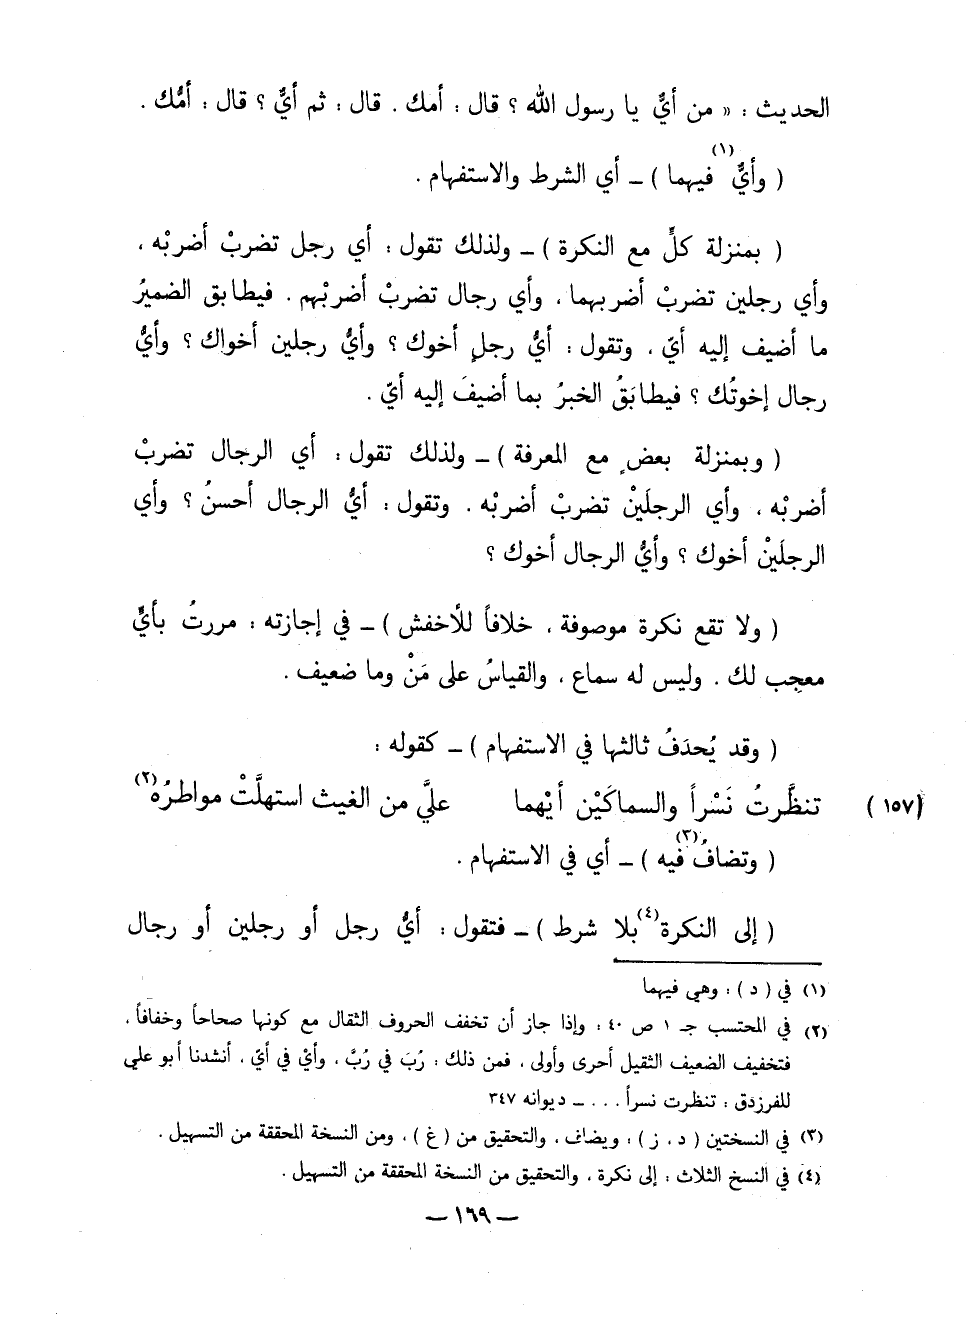 الحديث : « من أيٌّ يا رسول الله ؟ قال : أمك . قال : ثم أيٌّ ؟ قال : أمُّك .
( وأيٌّ(١) فيهما ) ـ أي الشرط والاستفهام .
( بمنزلة كلٍّ مع النكرة ) ـ ولذلك تقول : أي رجل تضربْ أضربْه ،
وأي رجلين تضربْ أضربهما ، وأي رجال تضربْ أضربْهم . فيطابق الضميرُ
ما أضيف إليه أيّ ، وتقول : أيُّ رجلٍ أخوك ؟ وأيُّ رجلين أخواك ؟ وأيُّ
رجال إخوتُك ؟ فيطابَقُ الخبرُ بما أضيفَ إليه أيّ .
( وبمنزلة بعضٍ مع المعرفة ) ـ ولذلك تقول : أي الرجال تضربْ
أضربْه ، وأي الرجلَينْ تضربْ أضربْه . وتقول : أيُّ الرجال أحسنُ ؟ وأي
الرجلَينْ أخوك ؟ وأيُّ الرجال أخوك ؟
( ولا تقع نكرة موصوفة ، خلافاً للأخفش ) ـ في إجازته : مررتُ بأيٍّ
معجبٍ لك . وليس له سماع ، والقياسُ على مَنْ وما ضعيف .
( وقد يُحذَفُ ثالثها في الاستفهام ) ـ كقوله :
(١٥٧) تنظَّرتُ نَسْراً والسماكَيْن أيْهما عليَّ من الغيث استهلَّتْ مواطرُه(٢)
( وتضافُ(٣) فيه ) ـ أي في الاستفهام .
( إلى النكرة(٤) بلا شرط ) ـ فتقول : أيُّ رجل أو رجلين أو رجال
(١) في ( د ) : وهي فيهما
(٢) في المحتسب جـ ١ ص ٤٠ : وإذا جاز أن تخفف الحروف الثقال مع كونها صحاحاً وخفافاً ،
فتخفيف الضعيف الثقيل أحرى وأولى ، فمن ذلك : رُبَ في رُبَّ ، وأيْ في أيّ ، أنشدنا أبو علي
للفرزدق : تنظرت نسراً . . . ـ ديوانه ٣٤٧
(٣) في النسختين ( د ، ز ) : ويضاف ، والتحقيق من ( غ ) ، ومن النسخة المحققة من التسهيل .
(٤) في النسخ الثلاث : إلى نكرة ، والتحقيق من النسخة المحققة من التسهيل .
ـ ١٦٩ ـ